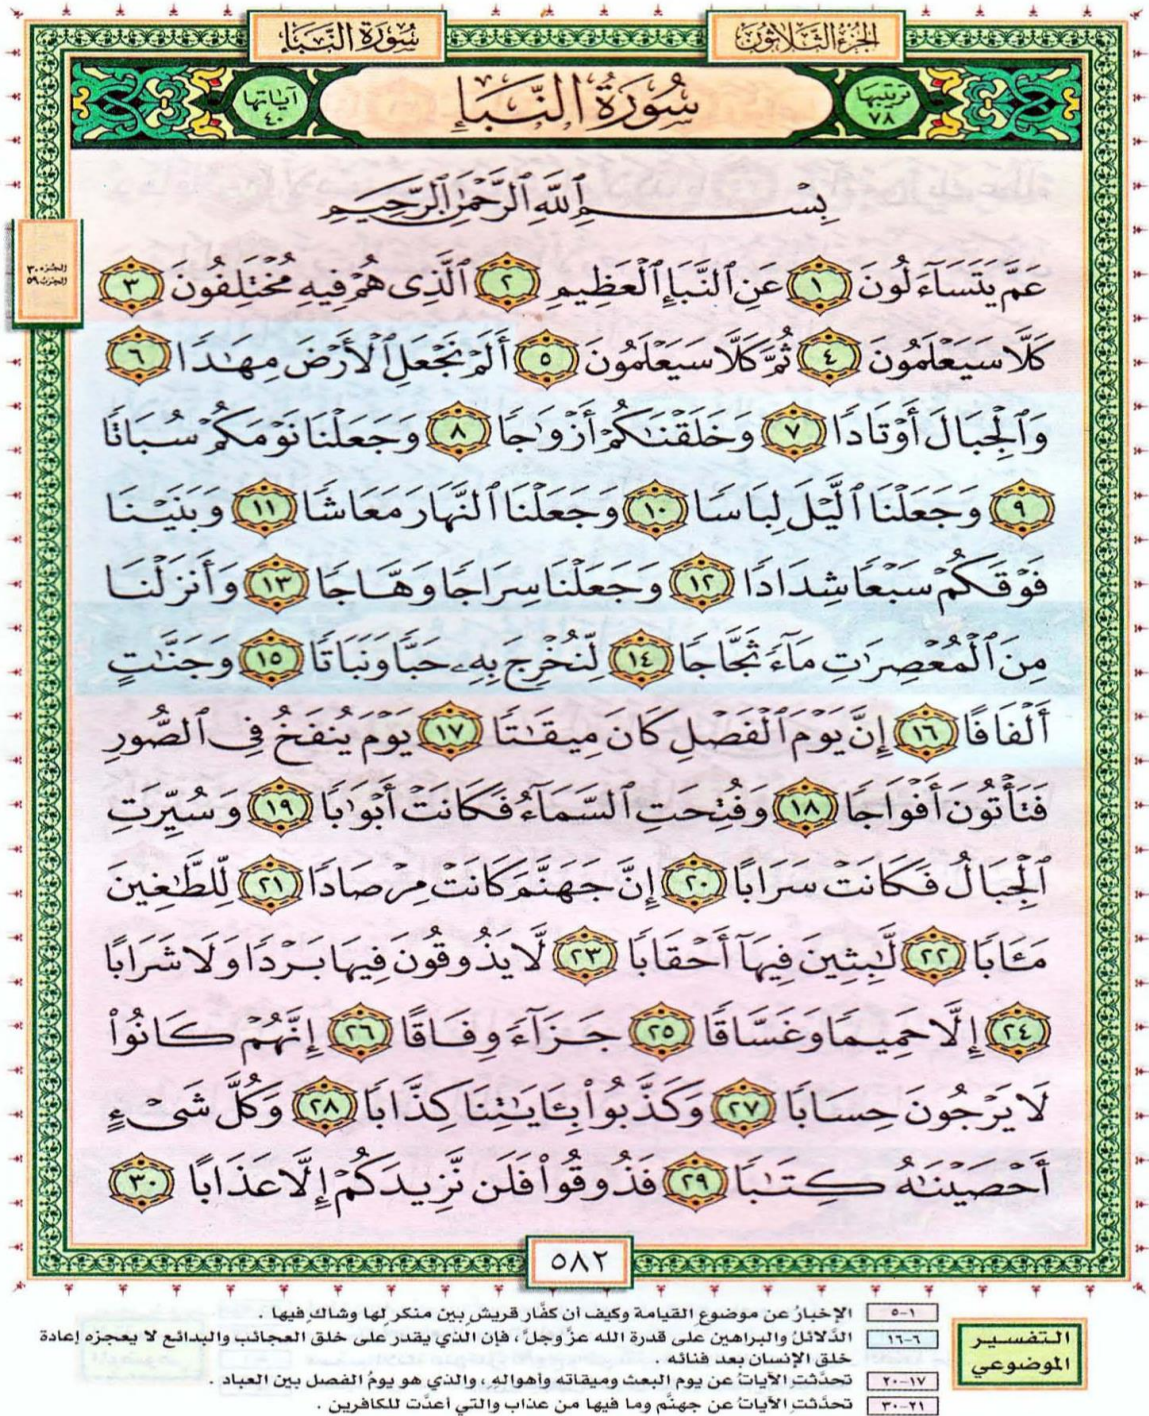 الجزء الثلاثون
سورة النبإ
ترتيبها ٧٨
سُورَةُ النَّبَإِ
آياتها ٤٠
بِسْمِ ٱللَّهِ ٱلرَّحْمَٰنِ ٱلرَّحِيمِ
الجزء ٣٠
الحزب ٥٩
عَمَّ يَتَسَآءَلُونَ ١ عَنِ ٱلنَّبَإِ ٱلْعَظِيمِ ٢ ٱلَّذِى هُمْ فِيهِ مُخْتَلِفُونَ ٣
كَلَّا سَيَعْلَمُونَ ٤ ثُمَّ كَلَّا سَيَعْلَمُونَ ٥ أَلَمْ نَجْعَلِ ٱلْأَرْضَ مِهَٰدًا ٦
وَٱلْجِبَالَ أَوْتَادًا ٧ وَخَلَقْنَٰكُمْ أَزْوَٰجًا ٨ وَجَعَلْنَا نَوْمَكُمْ سُبَاتًا
٩ وَجَعَلْنَا ٱلَّيْلَ لِبَاسًا ١٠ وَجَعَلْنَا ٱلنَّهَارَ مَعَاشًا ١١ وَبَنَيْنَا
فَوْقَكُمْ سَبْعًا شِدَادًا ١٢ وَجَعَلْنَا سِرَاجًا وَهَّاجًا ١٣ وَأَنزَلْنَا
مِنَ ٱلْمُعْصِرَٰتِ مَآءً ثَجَّاجًا ١٤ لِّنُخْرِجَ بِهِۦ حَبًّا وَنَبَاتًا ١٥ وَجَنَّٰتٍ
أَلْفَافًا ١٦ إِنَّ يَوْمَ ٱلْفَصْلِ كَانَ مِيقَٰتًا ١٧ يَوْمَ يُنفَخُ فِى ٱلصُّورِ
فَتَأْتُونَ أَفْوَاجًا ١٨ وَفُتِحَتِ ٱلسَّمَآءُ فَكَانَتْ أَبْوَٰبًا ١٩ وَسُيِّرَتِ
ٱلْجِبَالُ فَكَانَتْ سَرَابًا ٢٠ إِنَّ جَهَنَّمَ كَانَتْ مِرْصَادًا ٢١ لِّلطَّٰغِينَ
مَـَٔابًا ٢٢ لَّٰبِثِينَ فِيهَآ أَحْقَابًا ٢٣ لَّا يَذُوقُونَ فِيهَا بَرْدًا وَلَا شَرَابًا
٢٤ إِلَّا حَمِيمًا وَغَسَّاقًا ٢٥ جَزَآءً وِفَاقًا ٢٦ إِنَّهُمْ كَانُوا۟
لَا يَرْجُونَ حِسَابًا ٢٧ وَكَذَّبُوا۟ بِـَٔايَٰتِنَا كِذَّابًا ٢٨ وَكُلَّ شَىْءٍ
أَحْصَيْنَٰهُ كِتَٰبًا ٢٩ فَذُوقُوا۟ فَلَن نَّزِيدَكُمْ إِلَّا عَذَابًا ٣٠
٥٨٢
التفسير الموضوعي
١-٥ الإخبارُ عن موضوع القيامة وكيف أن كفَّار قريش بين منكر لها وشاك فيها .
٦-١٦ الدَّلائلُ والبراهين على قدرة الله عزَّ وجلَّ، فإن الذي يقدر على خلق العجائب والبدائع لا يعجزه إعادة
خلق الإنسان بعد فنائه .
١٧-٢٠ تحدَّثت الآياتُ عن يوم البعث وميقاته وأهواله، والذي هو يومُ الفصل بين العباد .
٢١-٣٠ تحدَّثت الآياتُ عن جهنَّم وما فيها من عذاب والتي أعدَّت للكافرين .